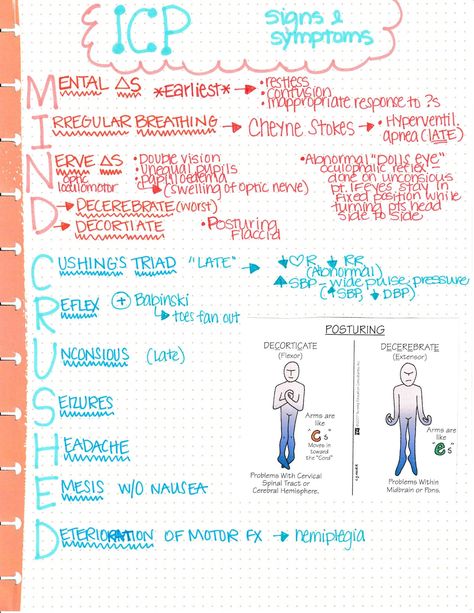 ICP
signs &
symptoms
MENTAL ΔS *Earliest* → • restless
• confusion
• inappropriate response to ?s
IRREGULAR BREATHING → Cheyne Stokes → • Hyperventil.
apnea (LATE)
NERVE ΔS
optic
loculomotor
• Double vision
• unequal pupils
• papiloedema
↳ (swelling of optic nerve)
• Abnormal "Dolls eye"
oculophalic reflex -
done on unconsious
pt. if eyes stay in
fixed position while
turning pts head
side to side
D → DECEREBRATE (worst)
→ DECORTIATE
• Posturing
flaccid
CUSHING'S TRIAD "LATE" → ↓♡R ↓ RR
(Abnormal)
↑ SBP - wide pulse pressure
(↑SBP, ↓DBP)
REFLEX ⊕ Babinski
↳ toes fan out
UNCONSIOUS (late)
SEIZURES
HEADACHE
EMESIS W/O NAUSEA
DETERIORATION OF MOTOR FX → hemiplegia
POSTURING
DECORTICATE
(Flexor)
Arms are
like
"C"s
Moves in
toward
the "Cord"
Problems With Cervical
Spinal Tract or
Cerebral Hemisphere.
DECEREBRATE
(Extensor)
Arms are
like
"e"s
Problems Within
Midbrain or Pons.